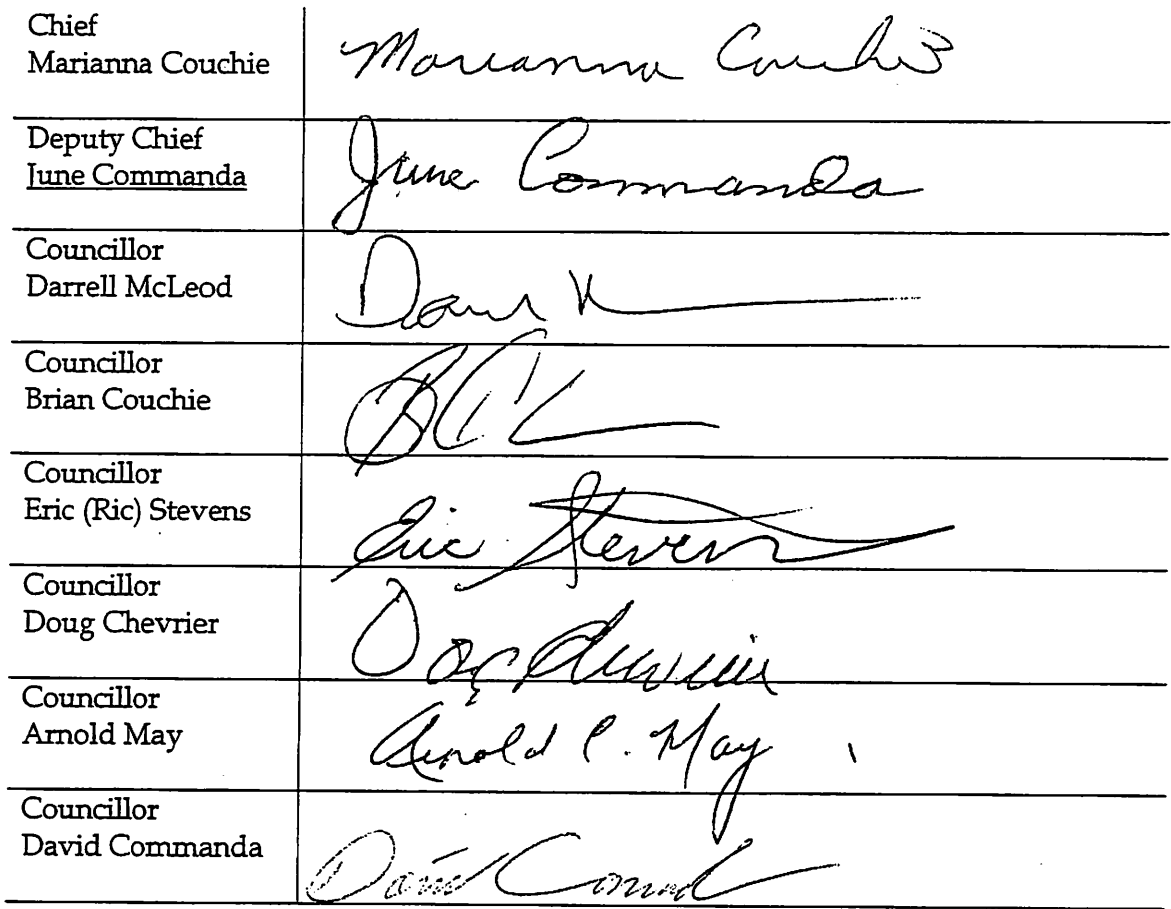 Chief
Marianna Couchie
Marianna Couchie
Deputy Chief
June Commanda
June Commanda
Councillor
Darrell McLeod
Councillor
Brian Couchie
Councillor
Eric (Ric) Stevens
Eric Stevens
Councillor
Doug Chevrier
Doug Chevrier
Councillor
Arnold May
Arnold C. May
Councillor
David Commanda
David